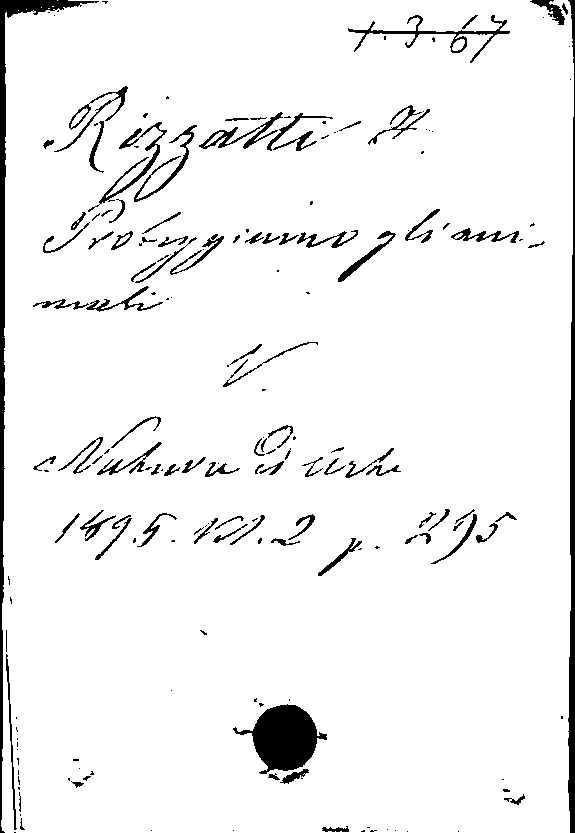 1.3.67
Rizzatti F.
Proteggiamo gli ani-
mali
V.
Natura ed Arte
1895. Vol. 2 p. 295